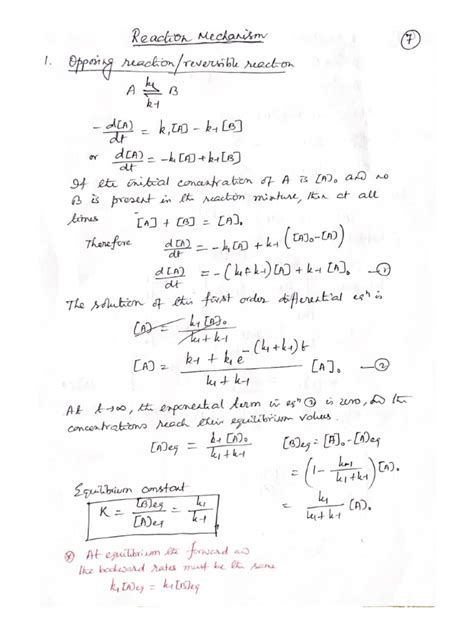 Reaction Mechanism
⑦
1. Opposing reaction/reversible reaction
A ⇌ B k1 k-1
- d[A]/dt = k1[A] - k-1[B]
or d[A]/dt = -k1[A] + k-1[B]
If the initial concentration of A is [A]o and no
B is present in the reaction mixture, then at all
times [A] + [B] = [A]o
Therefore d[A]/dt = -k1[A] + k-1([A]o-[A])
d[A]/dt = -(k1+k-1)[A] + k-1[A]o — ①
The solution of this first order differential eqn is
[A] = k1[A]o/k1+k-1
[A] = k-1 + k1 e^-(k1+k-1)t / k1+k-1 [A]o — ②
At t→∞, the exponential term in eqn ② is zero, and the
concentrations reach their equilibrium values.
[A]eq = k-1[A]o/k1+k-1 [B]eq = [A]o-[A]eq
= (1 - k-1/k1+k-1)[A]o
= k1/k1+k-1 [A]o
Equilibrium constant
K = [B]eq/[A]eq = k1/k-1
At equilibrium the forward and
the backward rates must be the same
k1[A]eq = k-1[B]eq